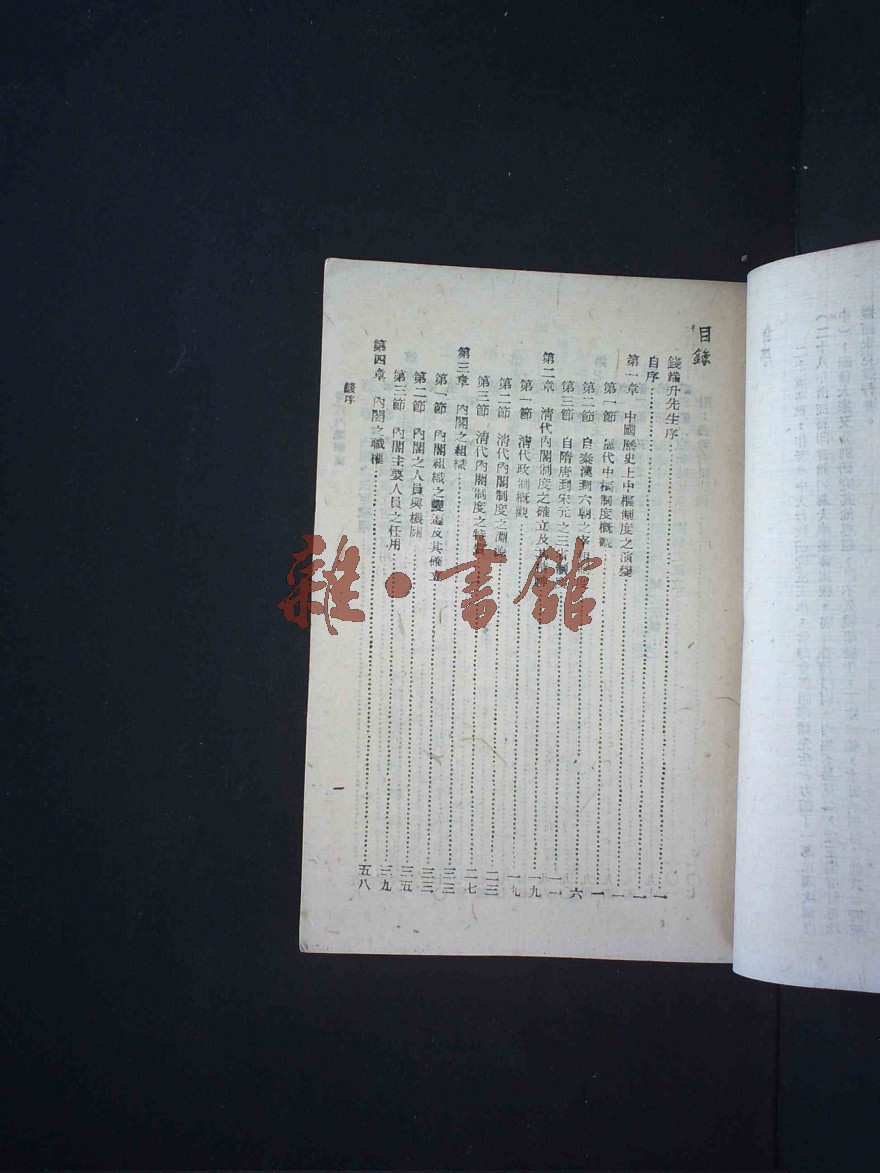 目錄
錢端升先生序……一
自序……一
第一章 中國歷史上中樞制度之演變……一
第一節 歷代中樞制度概觀……一
第二節 自秦漢到六朝之……六
第三節 自隋唐到宋元之三省制……一一
第二章 清代內閣制度之確立及其……一九
第一節 清代政制概觀……一九
第二節 清代內閣制度之淵源……二三
第三節 清代內閣制度之特質……二七
第三章 內閣之組織……三三
第一節 內閣組織之變遷及其確立……三三
第二節 內閣之人員與機關……三五
第三節 內閣主要人員之任用……三九
第四章 內閣之職權……五八
錢序
一
雜·書館